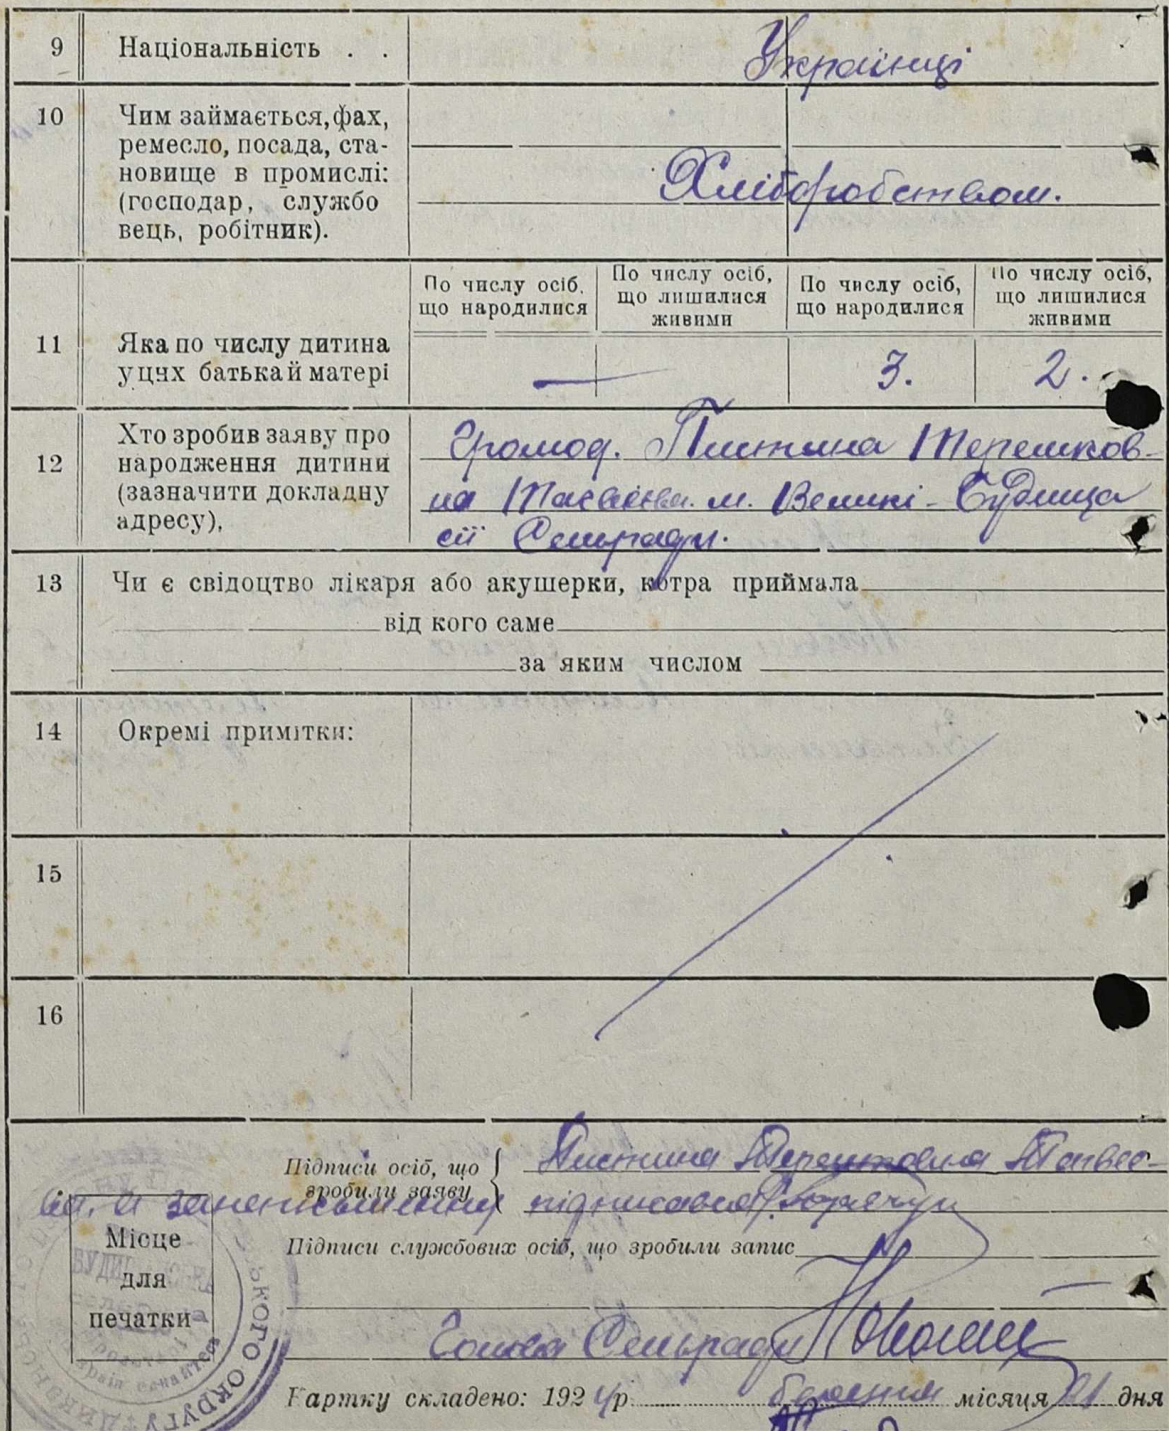 9 Національність . . Українці
10 Чим займається, фах,
ремесло, посада, ста-
новище в промислі: Хліборобством.
(господар, службо
вець, робітник).
По числу осіб, що народилися По числу осіб, що лишилися живими По числу осіб, що народилися По числу осіб, що лишилися живими
11 Яка по числу дитина
у цих батька й матері — 3. 2.
12 Хто зробив заяву про
народження дитини
(зазначити докладну
адресу),
Громод. Пистина Терешков-
на м. Великі-Будища
сії Сельради.
13 Чи є свідоцтво лікаря або акушерки, котра приймала
від кого саме
за яким числом
14 Окремі примітки:
15
16
Підписи осіб, що зробили заяву { Пистина Терешковна
а за неписьменну підписався
Місце
для
печатки
Підписи службових осіб, що зробили запис
Голова Сельради
Картку складено: 1924 р березня місяця 21 дня
ЬКОГО ОКРУГУ